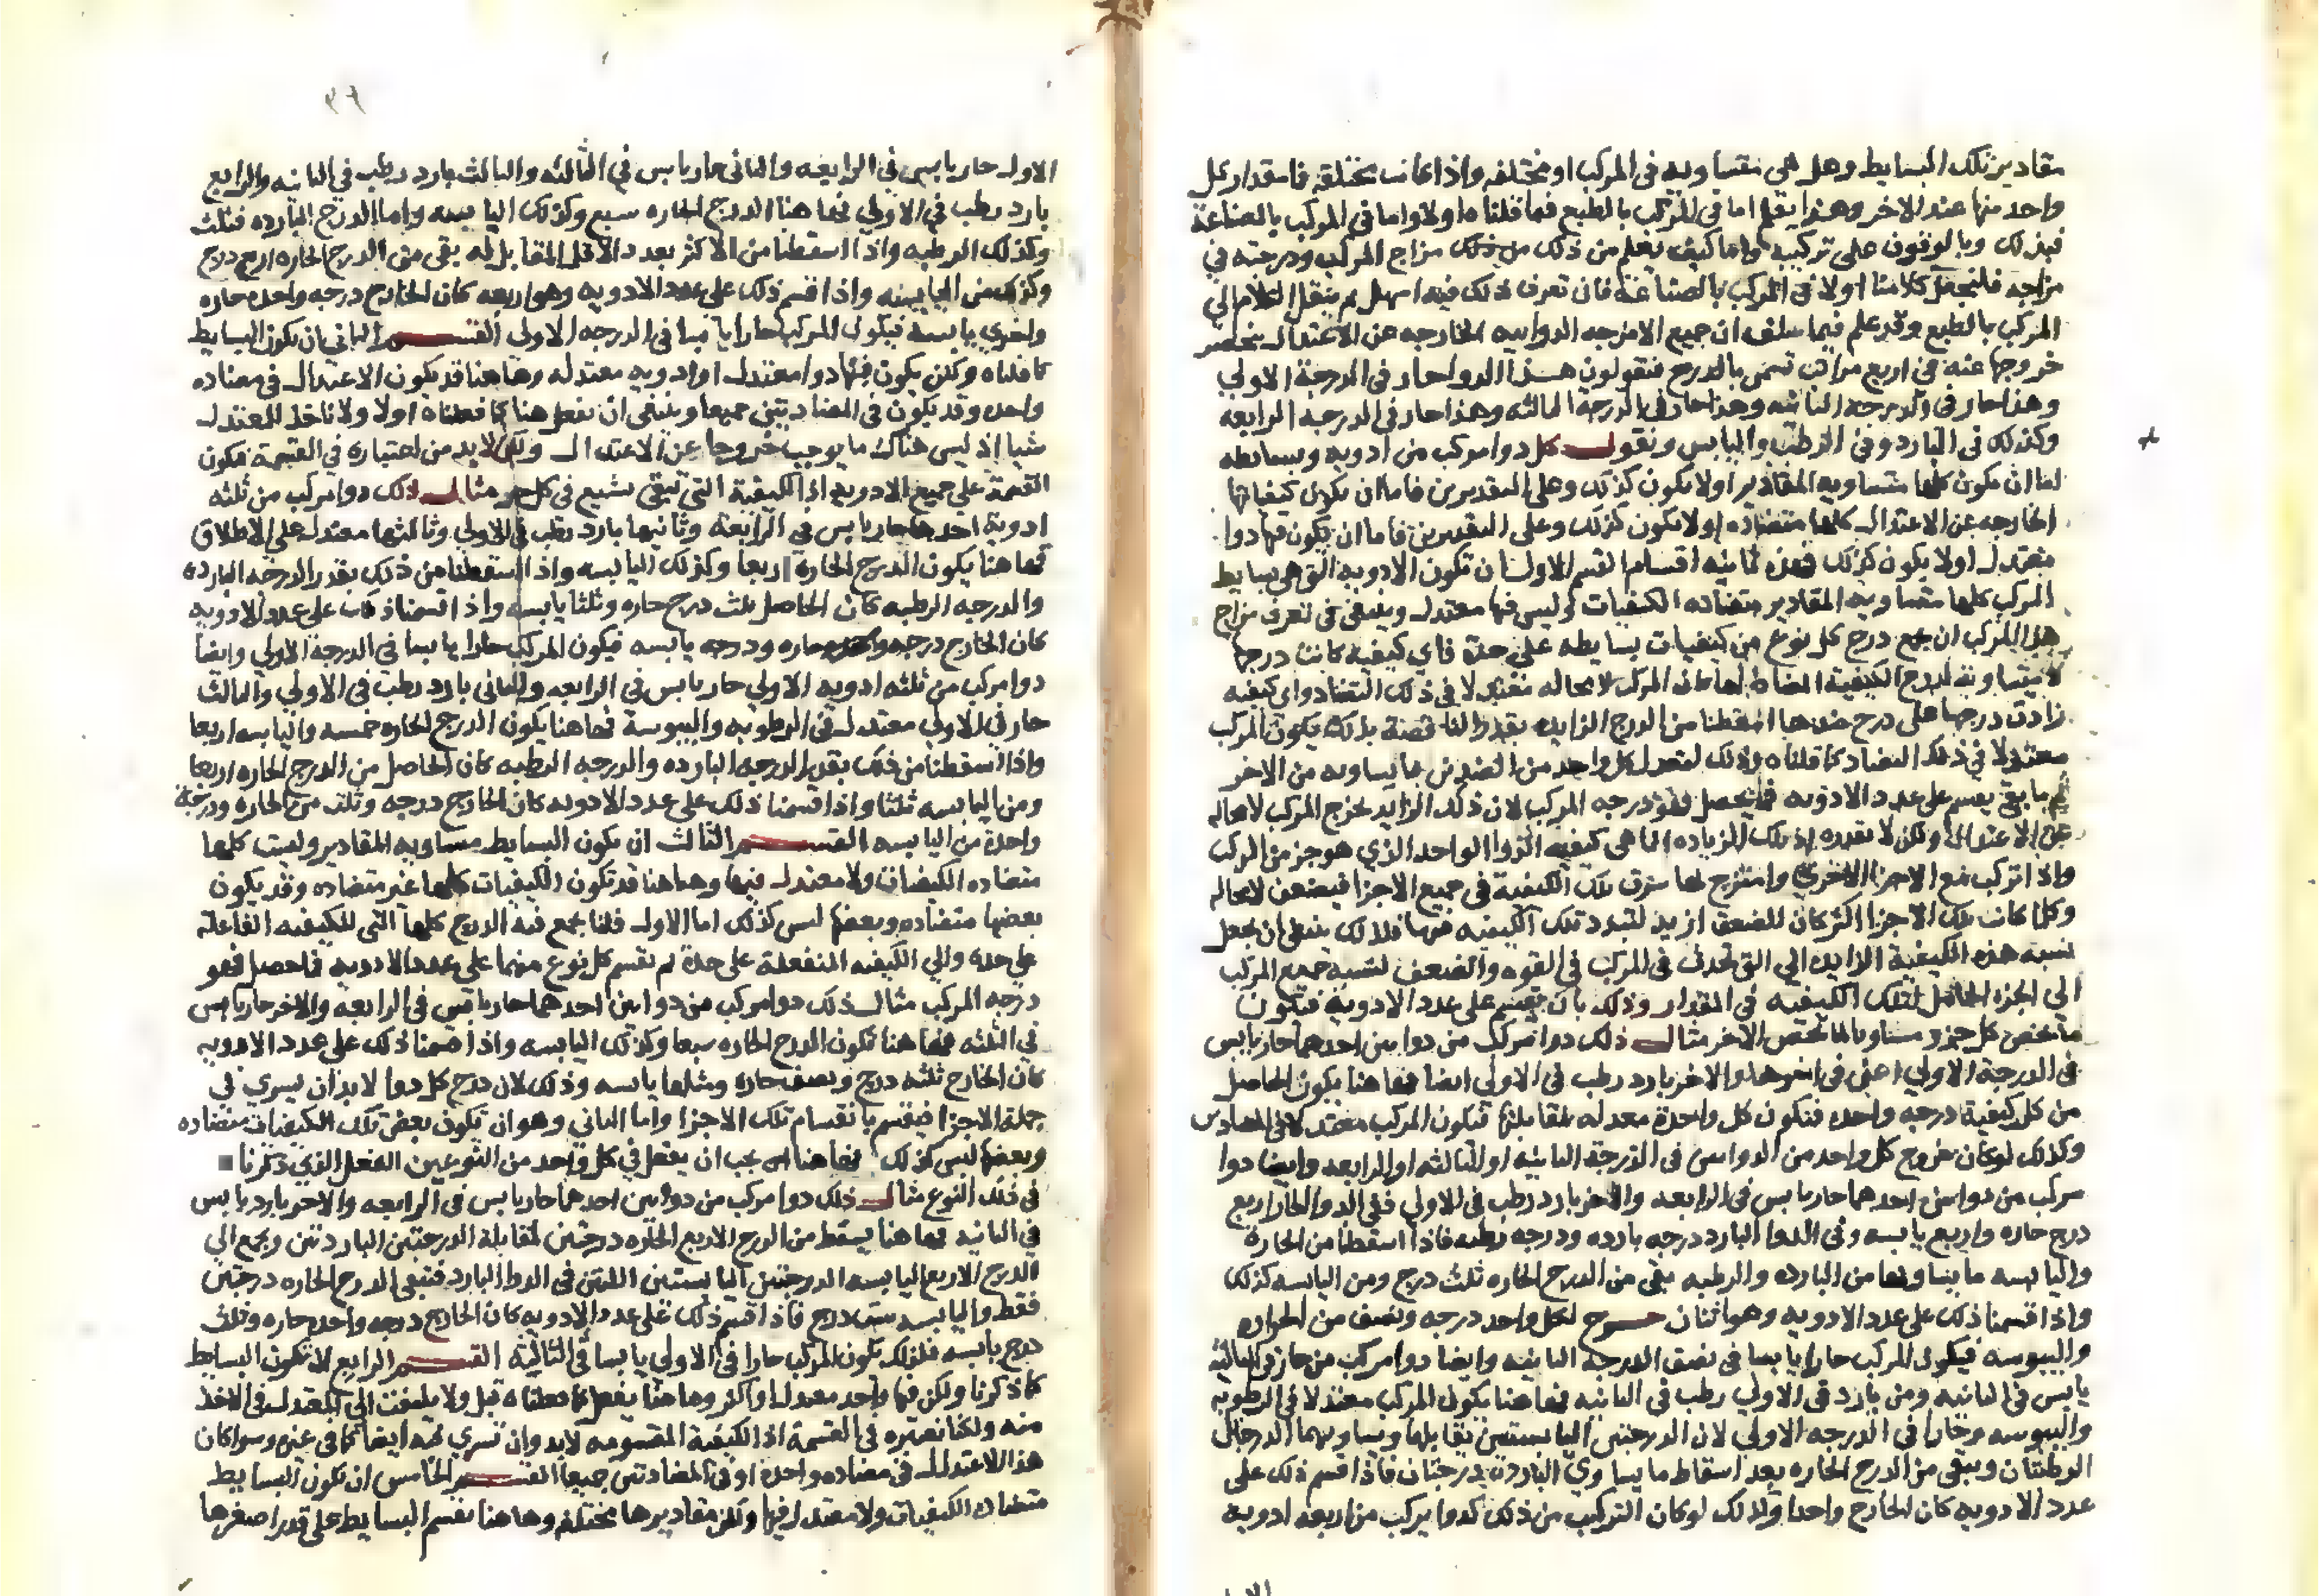 مقادير تلك البسايط وهل هي متساويه في المركب او مختلفه واذا كانت مختلفه فما مقدار كل
واحد منها عند الاخر وهذا يعلم اما في المركب بالطبع فما قلناه اولا واما في المركب بالصناعة
فبذلك وبالوقوف على تركيبه واما كيف يعلم من ذلك مزاج المركب ودرجته في
مزاجه فلنجعل كلامنا اولا في المركب بالصناعة فان تعرف ذلك فيه اسهل ثم ننقل الكلام الي
المركب بالطبع وقد علم فيما سلف ان جميع الامزجه الدواييه الخارجه عن الاعتدال ينحصر
خروجها عنه في اربع مراتب تسمى بالدرج فتقولون هذا الدوا حار في الدرجة الاولي
وهذا حار في الدرجة الثانيه وهذا حار في الدرجة الثالثه وهذا حار في الدرجة الرابعه
وكذلك في البارد وفي الرطب واليابس ونقول كل دوا مركب من ادويه وبسايطه
اما ان يكون كلها متساويه المقادير اولا يكون كذلك وعلى التقديرين فاما ان يكون كيفياتها
الخارجه عن الاعتدال كلها متضاده اولا يكون كذلك وعلى التقديرين فاما ان يكون فيها دوا
معتدل اولا يكون كذلك فهذه ثمانيه اقسام القسم الاول ان تكون الادويه التي هي بسايط
المركب كلها متساويه المقادير متضاده الكيفيات وليس فيها معتدل وينبغي في تعرف مزاج
هذا المركب ان يجمع درج كل نوع من كيفيات بسايطه على حدة فاي كيفية كانت درجها
متساوية لدرج الكيفية المضاده لها كان المركب لا محاله معتدلا في ذلك التضاد واي كيفيه
زادت درجها على درج ضدها اسقطنا من الدرج الزايده بقدر الناقصة بذلك يكون المركب
معتدلا في ذلك التضاد كما قلناه وذلك لتعدل كل واحد من الضدين بما يساويه من الاخر
ثم ما بقي يقسم على عدد الادويه فما يحصل فهو درجه المركب لان ذلك الزايد يخرج المركب لا محاله
عن الاعتدال ولكن لا بقدره اذ تلك الزياده انما هي كيفيه الدوا الواحد الذي هو جزء من المركب
واذا تركب مع الاجزا الاخري وامتزج لها سرت تلك الكيفية في جميع الاجزا فيضعف لا محاله
وكلما كانت تلك الاجزا اكثر كان الضعف ازيد لتبدد تلك الكيفيه فيها فلذلك ينبغي ان يجعل
نسبه هذه الكيفية الزايده الي التي تحدث في المركب في القوه والضعف كنسبه جميع المركب
الي الجزء الحامل لتلك الكيفيه في المقدار وذلك بان يقسم على عدد الادويه فيكون
ما يخص كل جزو مساويا لما يخص الاخر مثال ذلك دوا مركب من دوايين احدهما حار يابس
في الدرجة الاولي اعني في اخرها والاخر بارد رطب في الاولي ايضا فهاهنا يكون الحاصل
من كل كيفية درجه واحده فتكون كل واحدة معدله لمقابلتها فيكون المركب معتدلا في المضادتين
وكذلك لو كان خروج كل واحد من الدوايين في الدرجة الثانيه او الثالثه او الرابعه وايضا دوا
مركب من دوايين احدهما حار يابس في الرابعه والاخر بارد رطب في الاولي ففي الدوا الحار اربع
درج حاره واربع يابسه وفي الدوا البارد درجه بارده ودرجه رطبه فاذا اسقطنا من الحارة
واليابسه ما يساويها من البارده والرطبه بقي من الدرج الحاره ثلث درج ومن اليابسه كذلك
واذا قسمنا ذلك على عدد الادويه وهو اثنان خرج لكل واحد درجه ونصف من الحراره
واليبوسه فيكون المركب حارا يابسا في نصف الدرجه الثانيه وايضا دوا مركب من حار في الثالثه
يابس في الثانيه ومن بارد في الاولي رطب في الثانيه فهاهنا يكون المركب معتدلا في الرطوبه
واليبوسه وحارا في الدرجه الاولي لان الدرجتين اليابستين تقابلها وتساويهما الدرجتان
الرطبتان ويبقى من الدرج الحاره بعد اسقاط ما يساوي البارده درجتان فاذا قسم ذلك على
عدد الادويه كان الخارج واحدا وكذلك لو كان التركيب من ذلك كدوا يركب من اربعه ادويه
الاول
٣٩
الاول حار يابس في الرابعه والثاني حار يابس في الثالثه والثالث بارد رطب في الثانيه والرابع
بارد رطب في الاولي فهاهنا الدرج الحاره سبع وكذلك اليابسه واما الدرج البارده فثلث
وكذلك الرطبه واذا اسقطنا من الاكثر بعدد الاقل المقابل له بقي من الدرج الحاره اربع درج
وكذلك من اليابسه واذا قسم ذلك على عدد الادويه وهو اربعه كان الخارج درجه واحده حاره
واخري يابسه فيكون المركب حارا يابسا في الدرجه الاولى القسم الثاني ان يكون البسايط
كما قلناه ولكن يكون فيها دوا معتدل او ادويه معتدله وهاهنا قد يكون الاعتدال في مضاده
واحده وقد يكون في المضادتين جميعا وينبغي ان نفعل هنا كما فعلناه اولا ولا ناخذ للمعتدل
شيا اذ ليس هناك ما يوجب خروجا عن الاعتدال ولكن لا بد من اعتباره في القسمة فيكون
القسمة على جميع الادويه اذ الكيفية التي تبقى تشيع في كلها مثال ذلك دوا مركب من ثلثه
ادوية احدها حار يابس في الرابعة وثانيها بارد رطب في الاولي وثالثها معتدل على الاطلاق
فهاهنا يكون الدرج الحاره اربعا وكذلك اليابسه واذا اسقطنا من ذلك بقدر الدرجه البارده
والدرجه الرطبه كان الحاصل ثلث درج حاره وثلثا يابسه واذا قسمنا ذلك على عدد الادويه
كان الخارج درجه واحده حاره ودرجه يابسه فيكون المركب حارا يابسا في الدرجة الاولي وايضا
دوا مركب من ثلثه ادويه الاولي حار يابس في الرابعه والثاني بارد رطب في الاولي والثالث
حار في الاولي معتدل في الرطوبه واليبوسة فهاهنا يكون الدرج الحاره خمسه واليابسه اربعا
واذا اسقطنا من ذلك بقدر الدرجه البارده والدرجه الرطبه كان الحاصل من الدرج الحاره اربعا
ومن اليابسه ثلثا واذا قسمنا ذلك على عدد الادويه كان الخارج درجه وثلث من الحاره ودرجة
واحدة من اليابسه القسم الثالث ان يكون البسايط متساويه المقادير وليست كلها
متضاده الكيفيات ولا معتدل فيها وهاهنا قد تكون الكيفيات كلها غير متضاده وقد يكون
بعضها متضاده وبعضها ليس كذلك اما الاول فلنا يجمع فيه الدرج كلها التي للكيفيه الفاعلة
على حده والي الكيفيه المنفعلة على حدة ثم نقسم كل نوع منهما على عدد الادويه فما حصل فهو
درجه المركب مثال ذلك دوا مركب من دوايين احدهما حار يابس في الرابعه والاخر حار يابس
في الثلثه فهاهنا تكون الدرج الحاره سبعا وكذلك اليابسه واذا قسمنا ذلك على عدد الادويه
كان الخارج ثلثه درج ونصف حاره ومثلها يابسه وذلك لان درج كل دوا لا بد ان يسري في
جملة الاجزا فيقسم بانقسام تلك الاجزا واما الثاني وهو ان تكون بعض تلك الكيفيات متضاده
وبعضها ليس كذلك فهاهنا يجب ان يفعل في كل واحد من النوعين الفعل الذي ذكرنا
في ذلك النوع مثال ذلك دوا مركب من دوايين احدهما حار يابس في الرابعه والاخر بارد يابس
في الثانيه فهاهنا يسقط من الدرج الاربع الحاره درجتين لمقابلة الدرجتين الباردتين ويجمع الي
الدرج الاربع اليابسه الدرجتين اليابستين اللتين في الدوا البارد فتبقى الدرج الحاره درجتين
فقط واليابسه ست درج فاذا قسم ذلك على عدد الادويه كان الخارج درجه واحده حاره وثلث
درج يابسه فلذلك يكون المركب حارا في الاولي يابسا في الثالثه القسم الرابع ان تكون البسايط
كما ذكرنا ولكن فيها واحد معتدل او اكثر وهاهنا يفعل كما فعلناه قبل ولا يلتفت الي المعتدل في الاخذ
منه ولكنا نعتبره في القسمة اذ الكيفية المقسومه لا بد وان تسري فيه ايضا كما في غيره وسوا كان
هذا الاعتدال في مضاده واحده او في المضادتين جميعا القسم الخامس ان تكون البسايط
متضاده الكيفيات ولا معتدل فيها ولكن مقاديرها مختلفه وهاهنا نقسم البسايط على قدر اصغرها